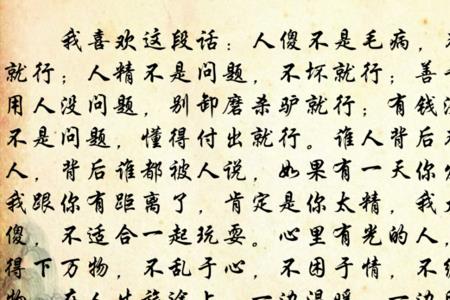 我喜欢这段话：人傻不是毛病，
就行；人精不是问题，不坏就行；善
用人没问题，别卸磨杀驴就行；有钱没
不是问题，懂得付出就行。谁人背后
人，背后谁都被人说，如果有一天你
我跟你有距离了，肯定是你太精，我太
傻，不适合一起玩耍。心里有光的人，
得下万物，不乱于心，不困于情，不
物，在人生旅途上，一边温暖，一边